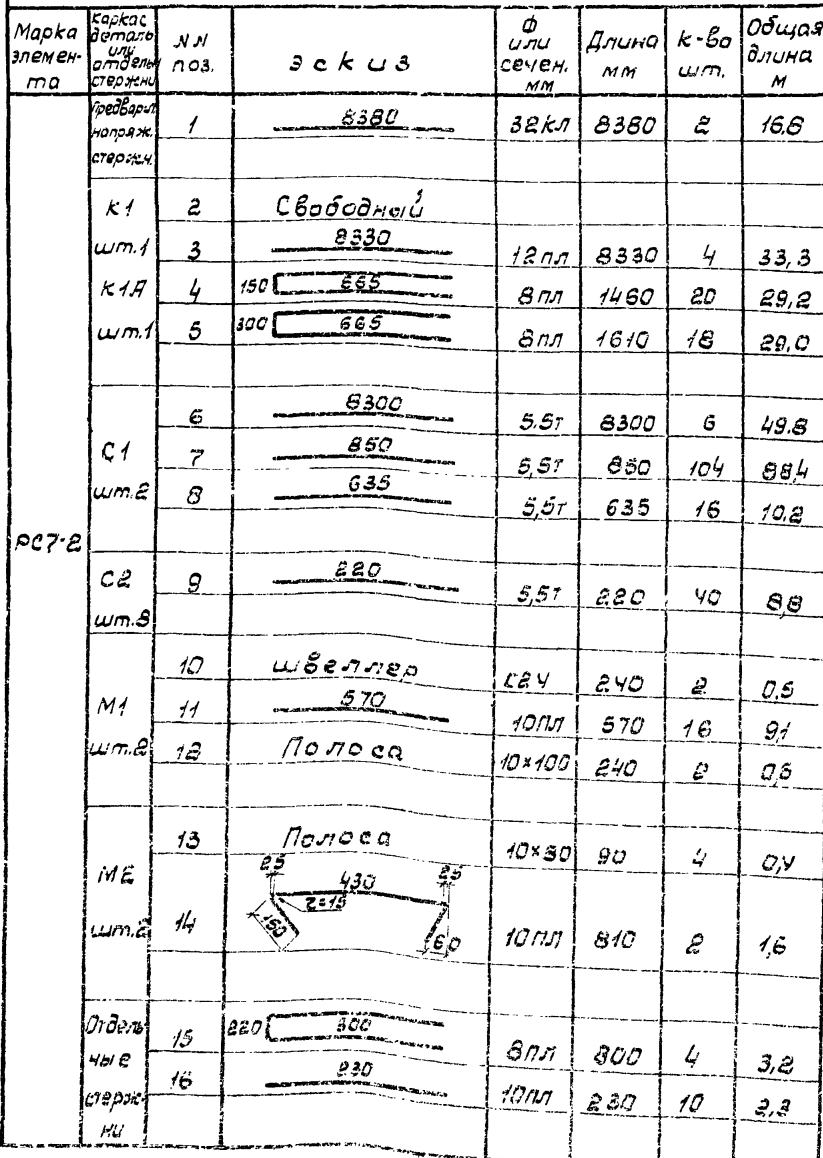 Марка элемента | каркас деталь или отдельн стержни | NN поз. | эскиз | Ф или сечен. мм | Длина мм | к-во шт. | Общая длина м
РС7-2
Предварит. напряж. стержн. | 1 | 8380 | 32кл | 8380 | 2 | 16,6
К1 | 2 | Свободный
шт.1 | 3 | 8330 | 12пл | 8330 | 4 | 33,3
К1А | 4 | 150 665 | 8пл | 1460 | 20 | 29,2
шт.1 | 5 | 300 665 | 8пл | 1610 | 18 | 29,0
6 | 8300 | 5,5т | 8300 | 6 | 49,8
С1 | 7 | 850 | 5,5т | 850 | 104 | 88,4
шт.2 | 8 | 635 | 5,5т | 635 | 16 | 10,2
С2 | 9 | 220 | 5,5т | 220 | 40 | 8,8
шт.8
10 | швеллер | 240 | 2 | 0,5
М1 | 11 | 570 | 10пл | 570 | 16 | 9,1
шт.2 | 12 | Полоса | 10×100 | 240 | 2 | 0,5
13 | Полоса | 10×80 | 90 | 4 | 0,4
25 430 25
М2 | z=15
шт.2 | 14 | 150 60 | 10пл | 810 | 2 | 1,6
Отдельные стержни | 15 | 220 300 | 8пл | 800 | 4 | 3,2
16 | 230 | 10пл | 230 | 10 | 2,3